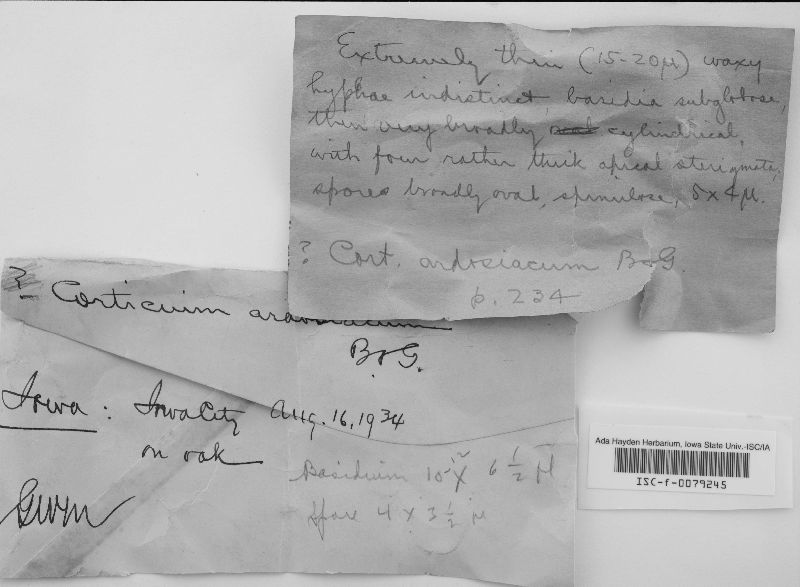 Extremely thin (15-20μ) waxy
hyphae indistinct, basidia subglobose,
then very broadly cylindrical,
with four rather thick apical sterigmata,
spores broadly oval, spinulose, 5x4μ.
? Cort. ardosiacum B&G.
p. 234
? Corticium ardosiacum
B&G.
Iowa: Iowa City Aug. 16, 1934
on oak
Basidium 10 X 6 1/2 μ
Spore 4 x 3 1/2 μ
GWM
Ada Hayden Herbarium, Iowa State Univ.-ISC/IA
ISC-f-0079245